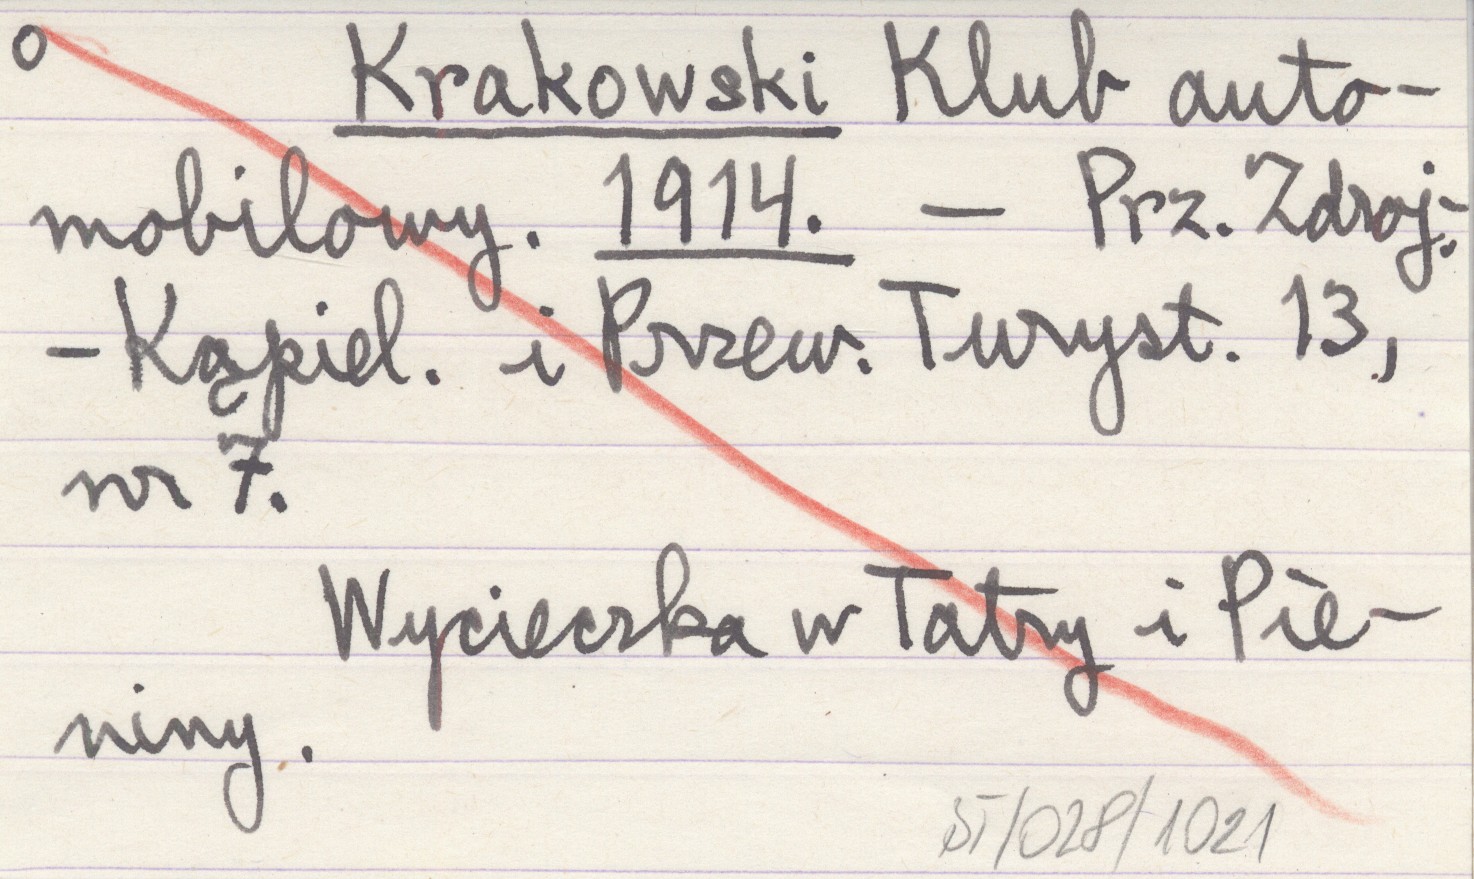 o Krakowski Klub auto-
mobilowy. 1914. — Prz. Zdroj.-
-Kąpiel. i Przew. Turyst. 13,
nr 7.
Wycieczka w Tatry i Pie-
niny.
ST/028/1021